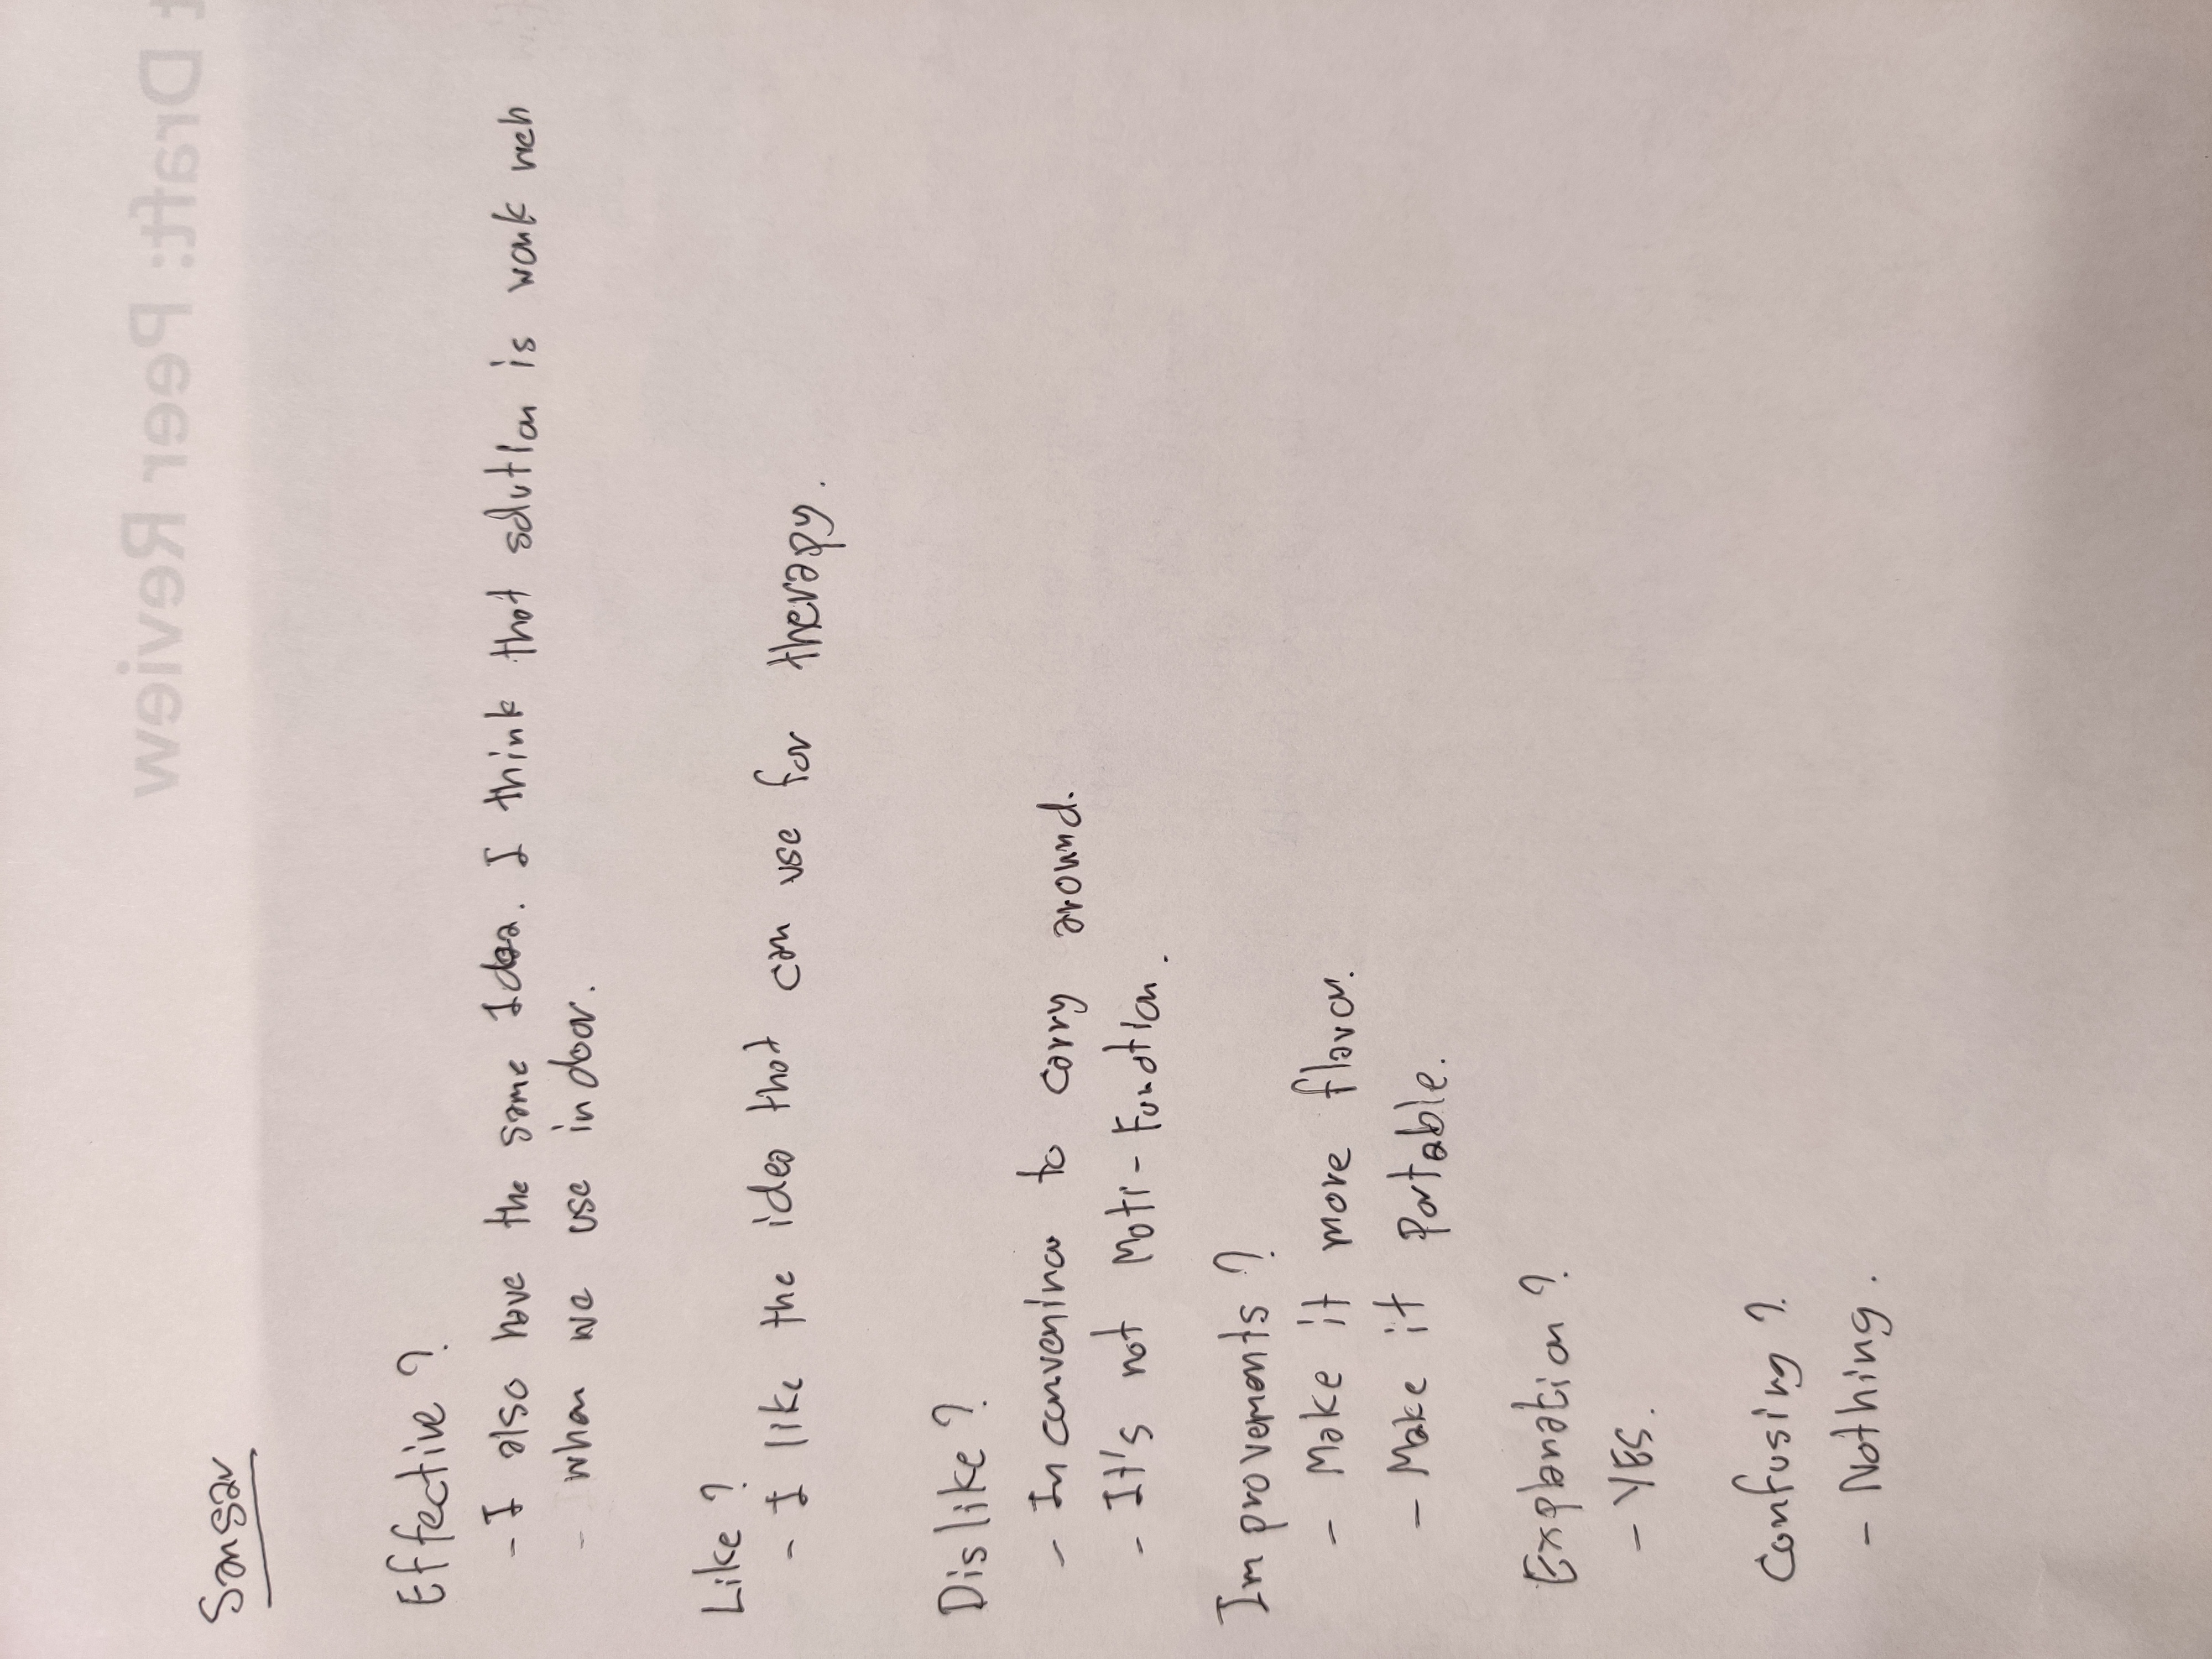 t Draft: Peer Review
Sansar
Effective ?
- I also have the same Idea. I think that solution is work well
- when we use indoor.
Like ?
- I like the idea that can use for therapy.
Dislike ?
- Inconvenince to carry around.
- It's not Moti-Function.
Improvements ?
- Make it more flavor.
- Make it Portable.
Explanation ?
- YES.
Confusing ?
- Nothing.